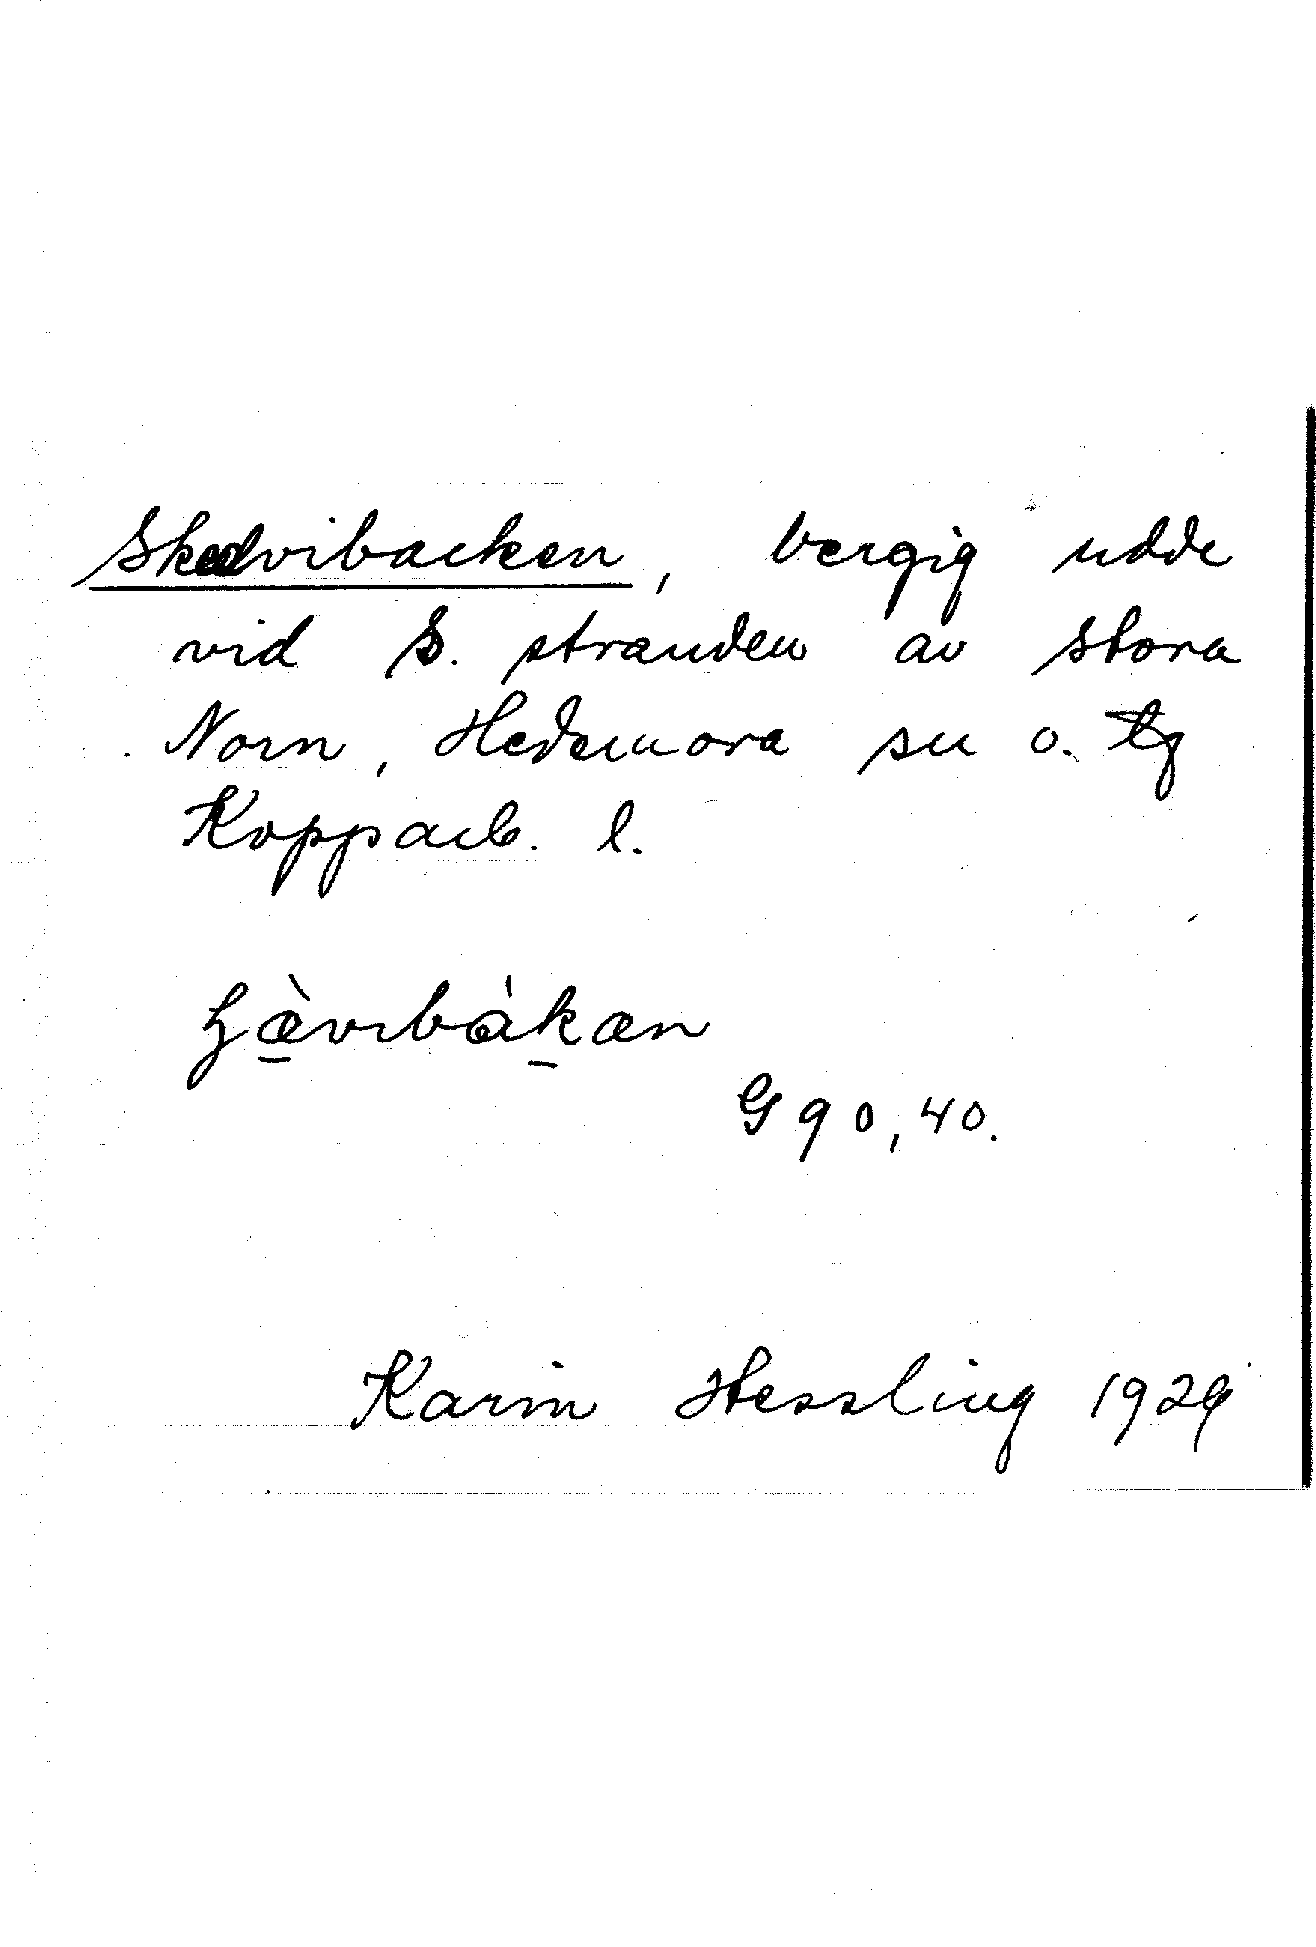 Skedvibacken, bergig udde
vid S. stranden av stora
Norn, Hedemora sn o. tg
Kopparb. l.
G 90,40.
Karin Hessling 1929